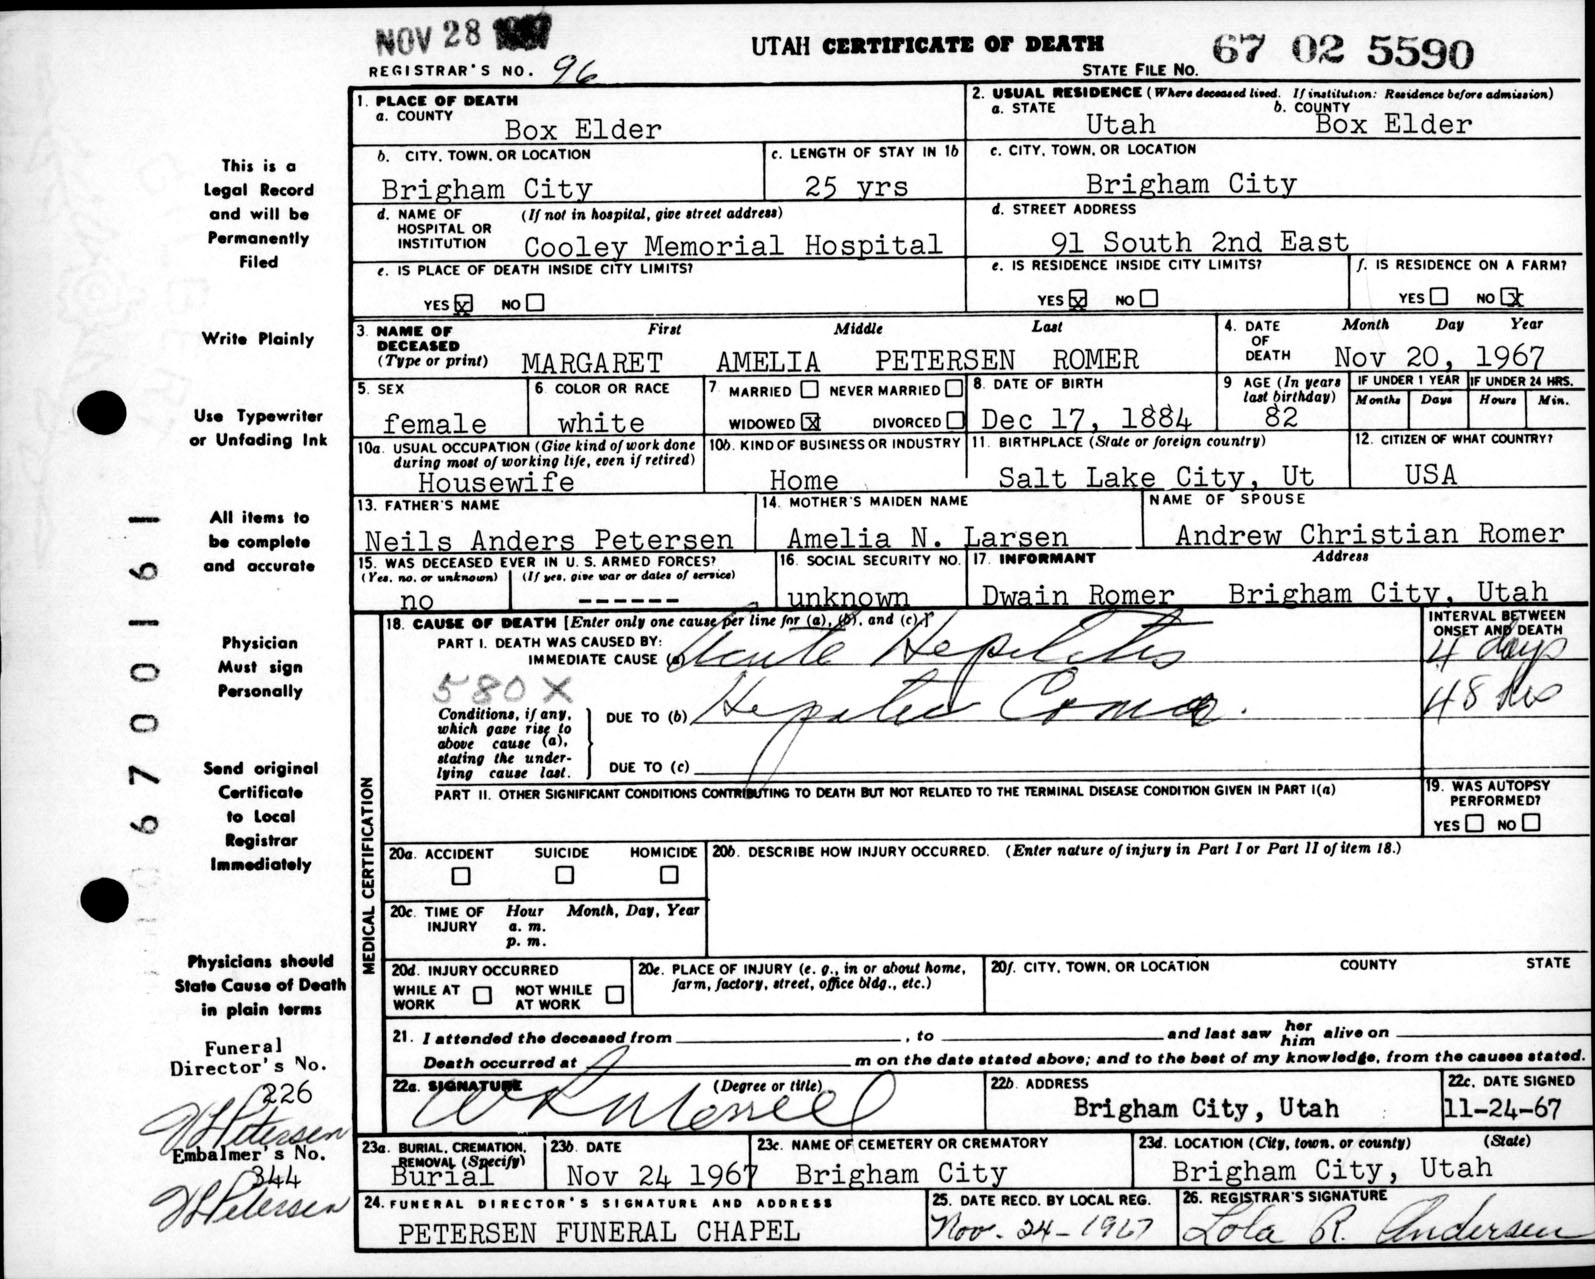 NOV 28 1967
UTAH CERTIFICATE OF DEATH
67 02 5590
REGISTRAR'S NO. 96
STATE FILE NO.
This is a
Legal Record
and will be
Permanently
Filed
Write Plainly
Use Typewriter
or Unfading Ink
All items to
be complete
and accurate
Physician
Must sign
Personally
Send original
Certificate
to Local
Registrar
Immediately
Physicians should
State Cause of Death
in plain terms
Funeral
Director's No.
226
W L Petersen
Embalmer's No.
344
W L Petersen
6700161
1. PLACE OF DEATH
a. COUNTY
Box Elder
2. USUAL RESIDENCE (Where deceased lived. If institution: Residence before admission)
a. STATE
Utah
b. COUNTY
Box Elder
b. CITY, TOWN, OR LOCATION
Brigham City
c. LENGTH OF STAY IN 1b
25 yrs
c. CITY, TOWN, OR LOCATION
Brigham City
d. NAME OF HOSPITAL OR INSTITUTION
(If not in hospital, give street address)
Cooley Memorial Hospital
d. STREET ADDRESS
91 South 2nd East
e. IS PLACE OF DEATH INSIDE CITY LIMITS?
YES X NO
e. IS RESIDENCE INSIDE CITY LIMITS?
YES X NO
f. IS RESIDENCE ON A FARM?
YES NO X
3. NAME OF DECEASED
(Type or print)
First Middle Last
MARGARET AMELIA PETERSEN ROMER
4. DATE OF DEATH
Month Day Year
Nov 20, 1967
5. SEX
female
6. COLOR OR RACE
white
7 MARRIED NEVER MARRIED
WIDOWED X DIVORCED
8. DATE OF BIRTH
Dec 17, 1884
9 AGE (In years last birthday)
82
IF UNDER 1 YEAR
Months Days
IF UNDER 24 HRS.
Hours Min.
10a. USUAL OCCUPATION (Give kind of work done during most of working life, even if retired)
Housewife
10b. KIND OF BUSINESS OR INDUSTRY
Home
11. BIRTHPLACE (State or foreign country)
Salt Lake City, Ut
12. CITIZEN OF WHAT COUNTRY?
USA
13. FATHER'S NAME
Neils Anders Petersen
14. MOTHER'S MAIDEN NAME
Amelia N. Larsen
NAME OF SPOUSE
Andrew Christian Romer
15. WAS DECEASED EVER IN U. S. ARMED FORCES?
(Yes, no, or unknown) (If yes, give war or dates of service)
no ------
16. SOCIAL SECURITY NO.
unknown
17. INFORMANT Address
Dwain Romer Brigham City, Utah
MEDICAL CERTIFICATION
18. CAUSE OF DEATH [Enter only one cause per line for (a), (b), and (c).]
PART I. DEATH WAS CAUSED BY:
IMMEDIATE CAUSE (a) Acute Hepatitis
INTERVAL BETWEEN ONSET AND DEATH
4 days
580X
Conditions, if any, which gave rise to above cause (a), stating the underlying cause last.
DUE TO (b) Hepatic Coma.
48 hrs
DUE TO (c)
PART II. OTHER SIGNIFICANT CONDITIONS CONTRIBUTING TO DEATH BUT NOT RELATED TO THE TERMINAL DISEASE CONDITION GIVEN IN PART I(a)
19. WAS AUTOPSY PERFORMED?
YES NO
20a. ACCIDENT SUICIDE HOMICIDE
20b. DESCRIBE HOW INJURY OCCURRED. (Enter nature of injury in Part I or Part II of item 18.)
20c. TIME OF INJURY
Hour Month, Day, Year
a. m.
p. m.
20d. INJURY OCCURRED
WHILE AT WORK NOT WHILE AT WORK
20e. PLACE OF INJURY (e. g., in or about home, farm, factory, street, office bldg., etc.)
20f. CITY, TOWN, OR LOCATION COUNTY STATE
21. I attended the deceased from , to and last saw her him alive on
Death occurred at m on the date stated above; and to the best of my knowledge, from the causes stated.
22a. SIGNATURE (Degree or title)
W R Merrell
22b. ADDRESS
Brigham City, Utah
22c. DATE SIGNED
11-24-67
23a. BURIAL, CREMATION, REMOVAL (Specify)
Burial
23b. DATE
Nov 24 1967
23c. NAME OF CEMETERY OR CREMATORY
Brigham City
23d. LOCATION (City, town, or county) (State)
Brigham City, Utah
24. FUNERAL DIRECTOR'S SIGNATURE AND ADDRESS
PETERSEN FUNERAL CHAPEL
25. DATE RECD. BY LOCAL REG.
Nov. 24-1967
26. REGISTRAR'S SIGNATURE
Lola R. Andersen